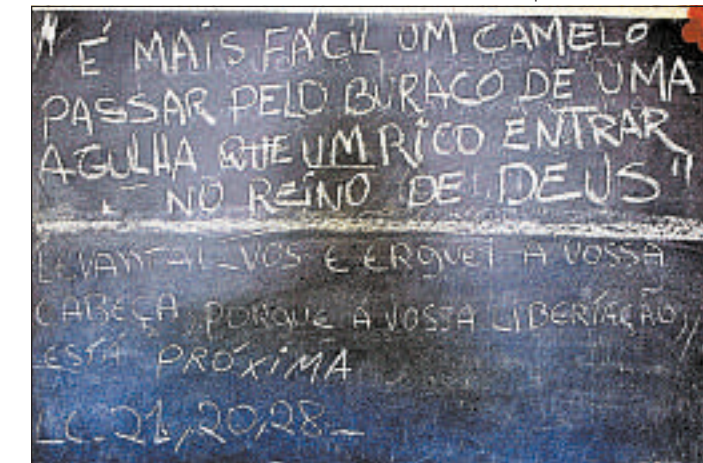 "É MAIS FÁCIL UM CAMELO
PASSAR PELO BURACO DE UMA
AGULHA QUE UM RICO ENTRAR
NO REINO DE DEUS"
LEVANTAI-VOS E ERGUEI A VOSSA
CABEÇA, PORQUE A VOSSA LIBERTAÇÃO,
ESTÁ PRÓXIMA
LC. 21,20,28